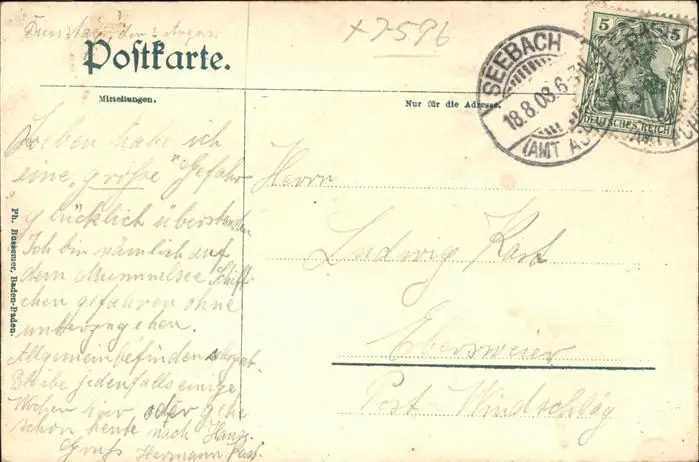 Dienstag, den
x7596
Postkarte.
Mitteilungen.
Nur für die Adresse.
SEEBACH
18.8.08.6-7N.
(AMT AC
5 5
DEUTSCHES REICH
Soeben habe ich
eine "große" Gefahr
glücklich überstanden
Ich bin nämlich auf
dem Mummelsee Schiff-
chen gefahren ohne
unterzugehen.
Allgemeinbefinden
Bleibe jedenfalls einige
Wochen hier, oder gehe
schon heute nach
Gruß Hermann
Herrn
Ludwig
Ebersweier
Post Windschläg
Ph. Bussemer, Baden-Baden.